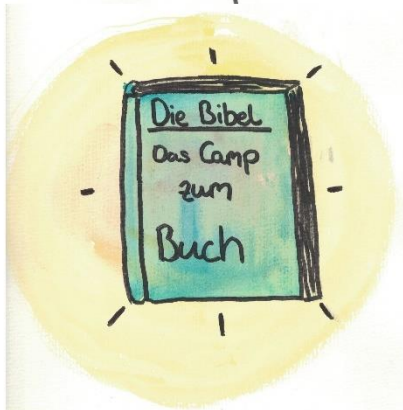 Die Bibel
Das Camp
zum
Buch